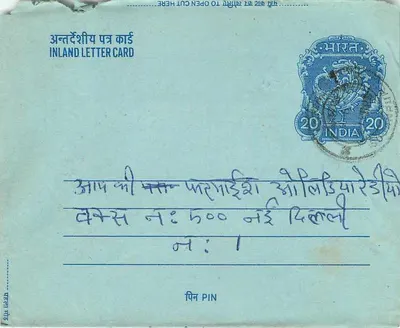 पत्र काट कर खोलिए TO OPEN CUT HERE
अन्तर्देशीय पत्र कार्ड
INLAND LETTER CARD
भारत
20 20
INDIA
आप की फरमाईश ओलिडिया रेडीयो
बक्स नः ५०० नई दिल्ली
नः 1
पिन PIN